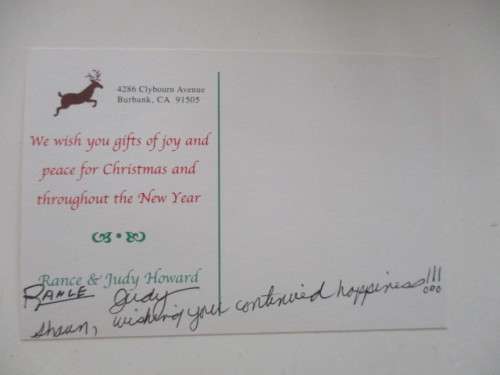 4286 Clybourn Avenue
Burbank, CA 91505
We wish you gifts of joy and
peace for Christmas and
throughout the New Year
Rance & Judy Howard
RANCE Judy
Shaun, wishing your continued happiness!!!